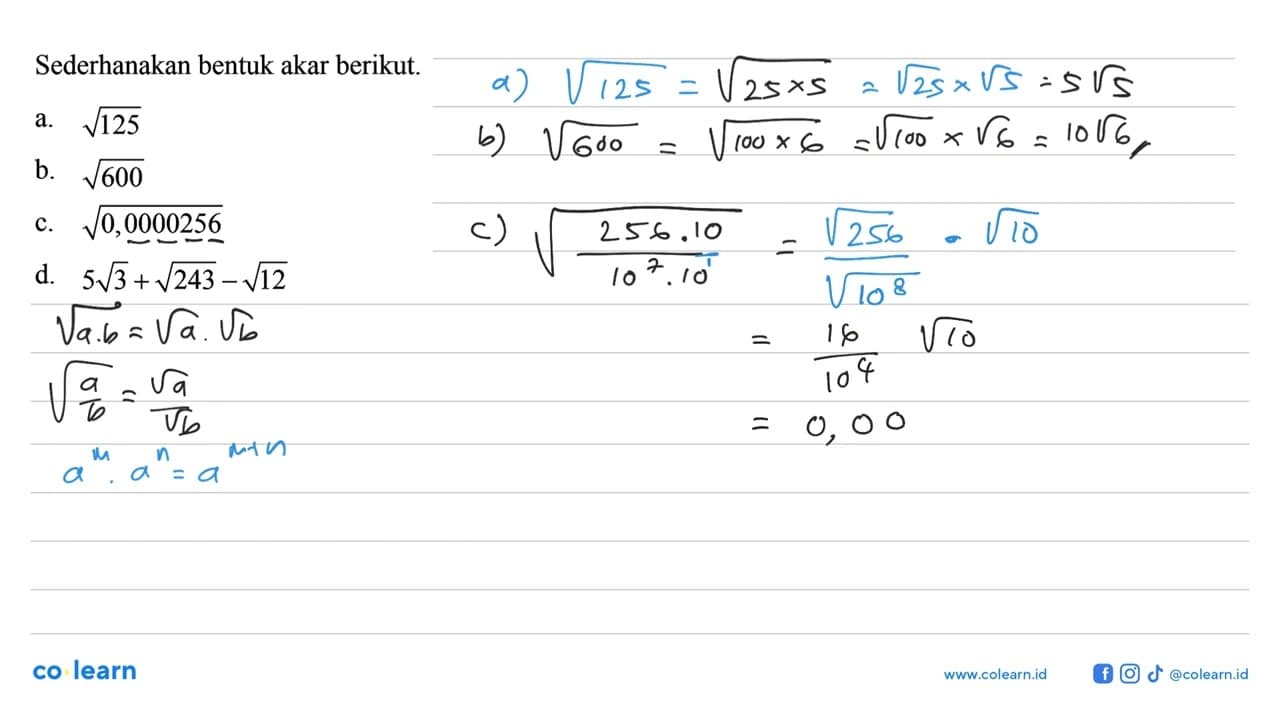 Sederhanakan bentuk akar berikut.
a. √125
b. √600
c. √0,0000256
d. 5√3 + √243 – √12
√a.b = √a . √b
√(a/b) = √a/√b
a^m . a^n = a^(m+n)
a) √125 = √(25×5) = √25 × √5 = 5√5
b) √600 = √(100 × 6) = √100 × √6 = 10√6,
c) √((256.10)/(10^7.10^1)) = √256/√(10^8) . √10
= 16/10^4 √10
= 0,00
co learn
www.colearn.id
@colearn.id